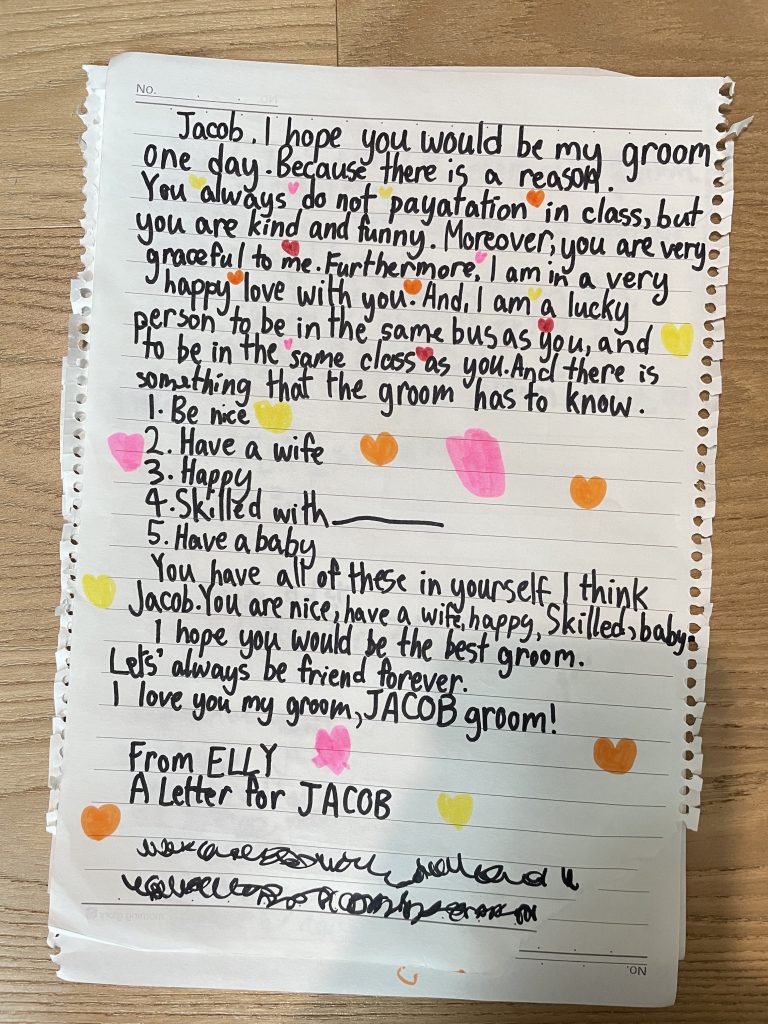 No.
Jacob. I hope you would be my groom
one day. Because there is a reason.
You always do not payatation in class, but
you are kind and funny. Moreover, you are very
graceful to me. Furthermore, I am in a very
happy love with you. And, I am a lucky
person to be in the same bus as you, and
to be in the same class as you. And there is
something that the groom has to know.
1. Be nice
2. Have a wife
3. Happy
4. Skilled with ______
5. Have a baby
You have all of these in yourself I think
Jacob. You are nice, have a wife, happy, Skilled, baby.
I hope you would be the best groom.
Lets' always be friend forever.
I love you my groom, JACOB groom!
From ELLY
A Letter for JACOB
No.